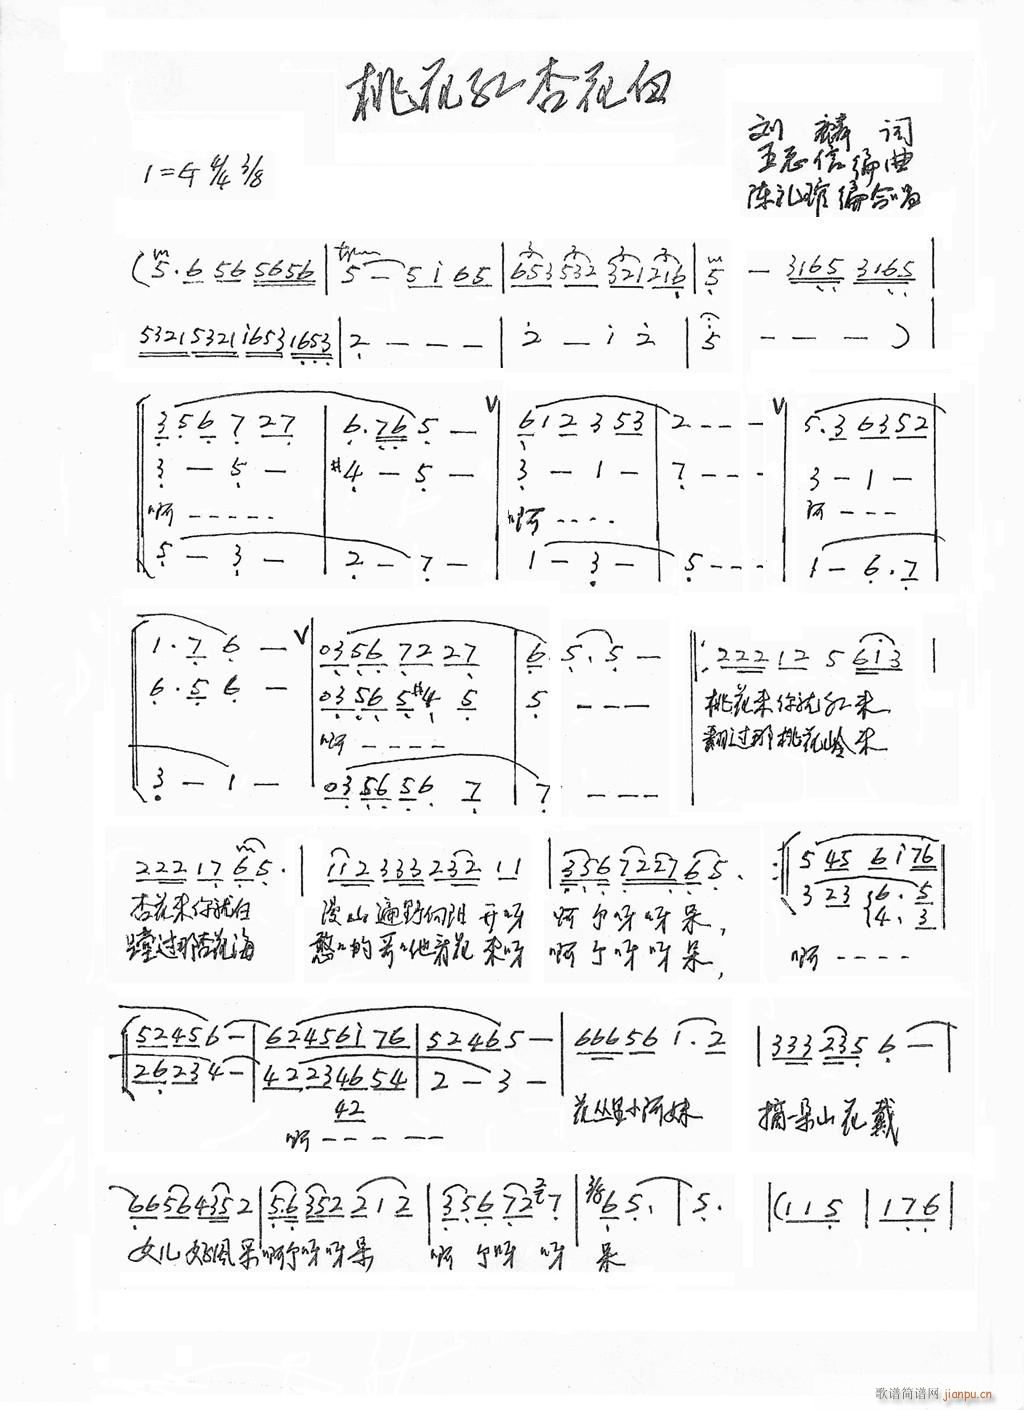 桃花红杏花白
刘麟 词
王志信 编曲
陈礼瑄 编合唱
4/4 3/8
(5·6 56 5656 | 5 - 5 i 65 | 653 532 321 216 | 5 - 3165 3165 |
5321 5321 i653 1653 | 2 - - - - | 2 - i 2 | 5 - - - )
356727 | 6·765 - | 612353 | 2 - - - | 5·36352
3 - 5 - | #4 - 5 - | 3 - 1 - | 7 - - - | 3 - 1 -
啊 - - - - - 啊 - - - - 啊 - - -
5 - 3 - | 2 - 7 - | 1 - 3 - | 5 - - - | 1 - 6·7
1·76 - | 0356 72 27 | 6 5·5 - | 222 12 5 6i3 |
6·56 - | 0356 5#4 5 | 5 - - - 桃花来你就红来
啊 - - - - 翻过那桃花岭来
3 - 1 - | 0356 56 7 | 7 - - -
222 17 65· | 112 333 232 11 | 3356 7227 65· | 5 45 6i76
杏花来你就白 漫山遍野向阳开呀 啊个呀呀呆, 3 23 6·5
蹚过那杏花海 憨憨的哥哥他看花来呀 啊个呀呀呆, 4·3
啊 - - - -
52456 - | 62456i76 | 52465 - | 66656 i·2 | 333 235 6 - |
26234 - | 42234654 | 2 - 3 -
42 花丛里小阿妹 摘一朵山花戴
啊 - - - - -
66564352 | 5·6 352 212 | 356 72 7 | 3/8 65· | 5· | (115 | 176 |
女儿好风采啊个呀呀呆 啊个呀呀呆
歌谱简谱网 jianpu.cn